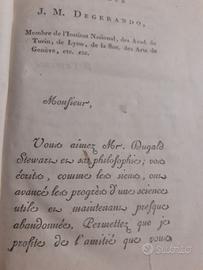 J. M. DEGERANDO,
Membre de l'Institut National, des Acad. de
Turin, de Lyon, de la Soc. des Arts de
Genève, etc. etc.
Monsieur,
Vous aimez Mr. Dugald
Stewart et sa philosophie; vos
écrits, comme les siens, ont
avancé les progrès d'une science
utile et maintenant presque
abandonnée. Permettez que je
profite de l'amitié que vous
Subito